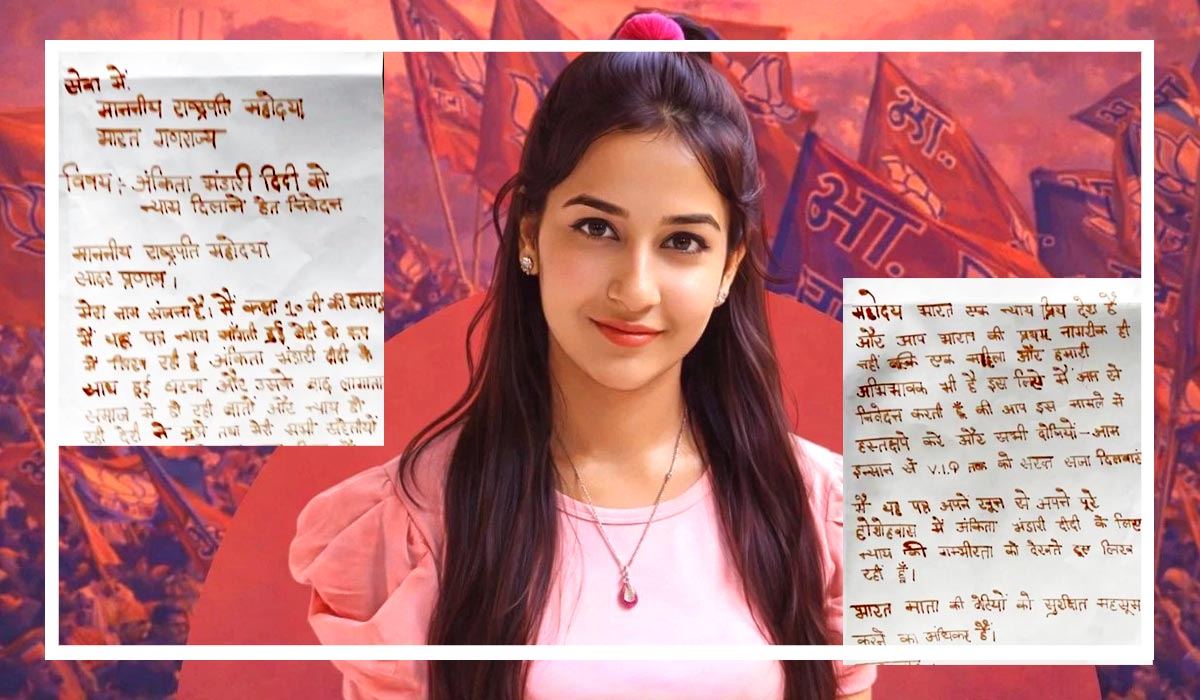 सेवा में,
माननीय राष्ट्रपति महोदया
भारत गणराज्य
विषय :- अंकिता भंडारी दिदी को
न्याय दिलाने हेत निवेदन
माननीय राष्ट्रपति महोदया
सादर प्रणाम।
मेरा नाम संजना है। मैं कक्षा 10 वी की छात्रा हूँ
मैं यह पत्र न्याय माँगती हुई बेटी के रूप
में लिख रही हूँ अंकिता भंडारी दीदी के
साथ हुई घटना और उसके बाद लागातार
समाज से हो रही बातों और न्याय हो
रही देरी ने मुझे तथा मेरी सभी सहेलीयों
भा.
भा.
भा.
महोदय भारत एक न्याय प्रिय देश है
और आप भारत की प्रथम नागरीक ही
नहीं बल्कि एक महिला और हमारी
अभिभावक भी है इस लिये मैं आप से
निवेदन करती हूँ की आप इस मामले में
हस्तक्षपे करे और सभी दोषियों-आम
इन्सान से V.I.P तक को सख्त सजा दिलवाएं
मैं यह पत्र अपने खून से अपने पूरे
होशोहवास में अंकिता भंडारी दीदी के लिए
न्याय की गम्भीरता को देखते हुए लिख
रही हूँ।
भारत माता की बेटियों को सुरक्षित महसूस
करने का अधिकार है।